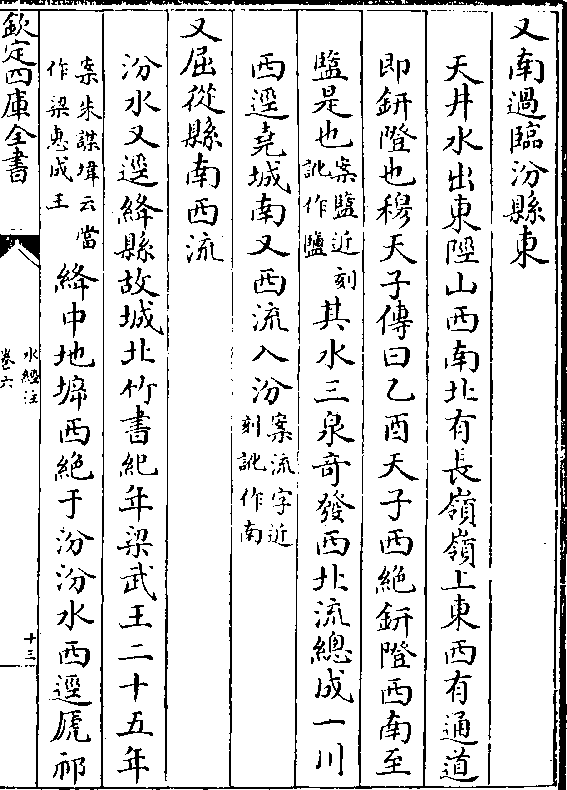 又南過臨汾縣東
天井水出東陘山西南北有長嶺嶺上東西有通道
即鈃隥也穆天子傳曰乙酉天子西絶鈃隥西南至
盬是也案盬近刻訛作鹽其水三泉奇發西北流總成一川
西逕堯城南又西流入汾案流字近刻訛作南
又屈從縣南西流
汾水又逕絳縣故城北竹書紀年梁武王二十五年
案朱謀㙔云當作梁惠成王絳中地㙠西絶于汾汾水西逕虒祁
欽定四庫全書
水經注
卷六
十三